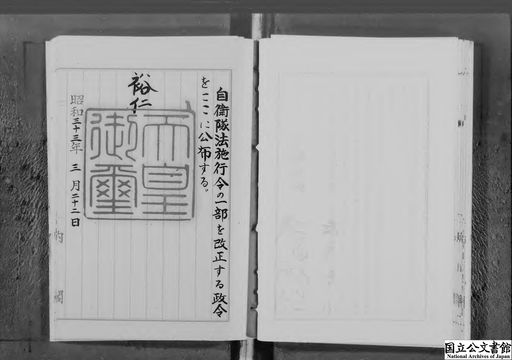 自衛隊法施行令の一部を改正する政令
をここに公布する。
裕仁
天皇
御璽
昭和三十三年三月二十二日
内閣
国立公文書館
National Archives of Japan